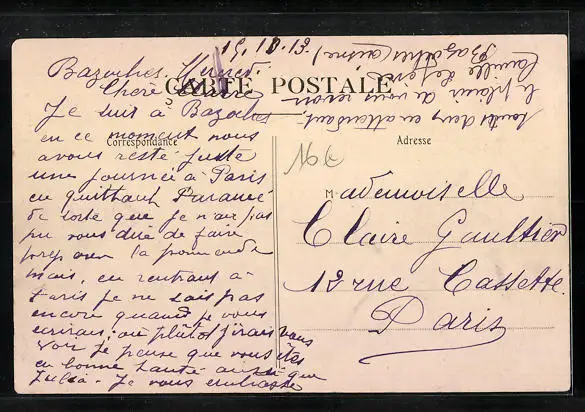 19.10.13.
Bazoches.
CARTE POSTALE
Chère
Je suis à Bazoches
en ce moment nous
Correspondance
avons resté juste
une journée à Paris
en quittant
de sorte que je n'ai pas
pu vous dire de faire
la promenade
mais, en rentrant à
Paris je ne sais pas
encore quand je vous
écrirai; ou plutôt j'irais vous
voir je pense que vous êtes
en bonne santé ainsi que
Julia. Je vous embrasse
toutes deux en attendant
le plaisir de vous revoir
Camille
Bazoches (aisne)
Adresse
Mademoiselle
Claire Gaultier
12 rue Cassette
Paris